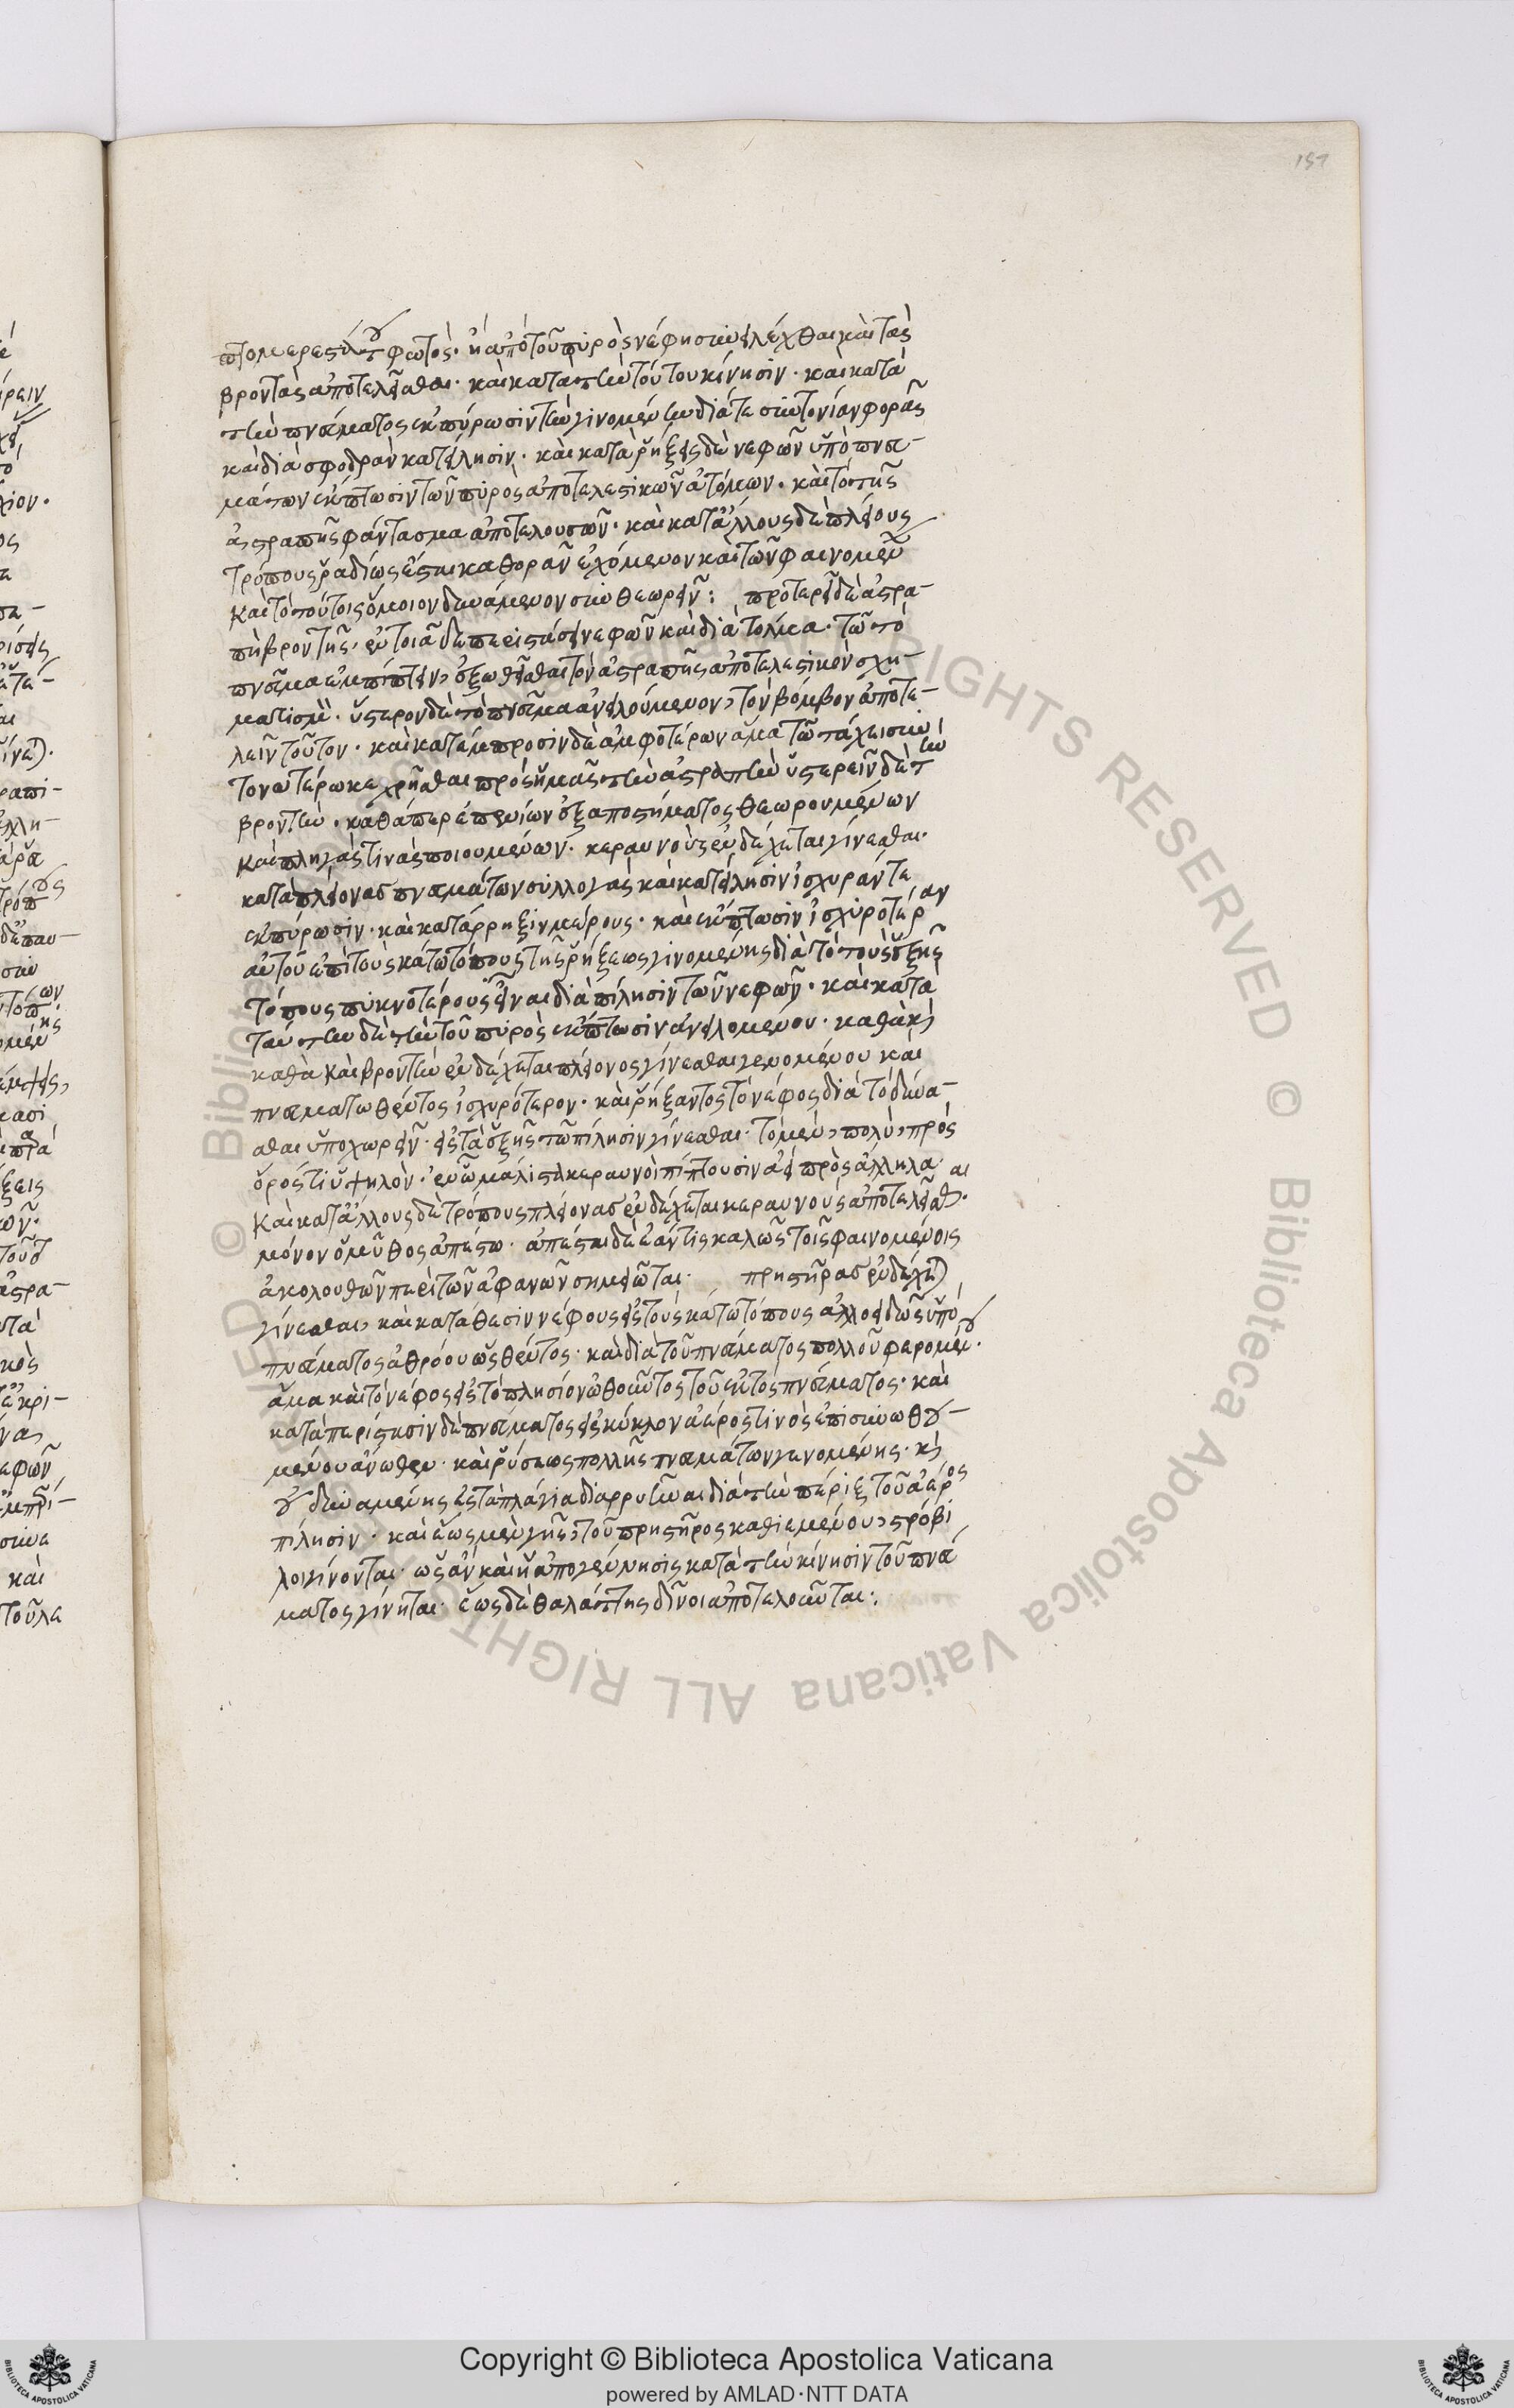 151
πτομερεστάτου φωτὸς· ἢ ἀπὸ τοῦ πυρὸς νέφη συνειλέχθαι καὶ τὰς
βροντὰς ἀποτελεῖσθαι· καὶ κατὰ τὴν τούτου κίνησιν· καὶ κατὰ
τὴν πνεύματος ἐκπύρωσιν τὴν γινομένην διά τε συντονίαν φορᾶς
καὶ διὰ σφοδρὰν κατείλησιν· καὶ κατὰ ῥήξεις δὲ νεφῶν ὑπὸ πνευ-
μάτων ἐκπτωσιν τῶν πυρὸς ἀποτελεστικῶν ἀτόμων· καὶ τὸ τῆς
ἀστραπῆς φάντασμα ἀποτελουσῶν· καὶ κατ' ἄλλους δὲ πλείους
τρόπους ῥαδίως ἔσται καθορᾶν ἐχόμενον καὶ τῶν φαινομένων
καὶ τὸ τούτοις ὅμοιον δυνάμενον συνθεωρεῖν: προτερεῖ δὲ ἀστρα-
πὴ βροντῆς· ἐν τοιᾷ δέ περιστάσει νεφῶν καὶ διὰ τὸ ἅμα· τῷ τὸ
πνεῦμα ἐμπίπτειν, ἐξωθεῖσθαι τὸν ἀστραπῆς ἀποτελεστικὸν σχη-
ματισμὸν· ὕστερον δὲ τὸ πνεῦμα ἀνειλούμενον, τὸν βόμβον ἀποτε-
λεῖν τοῦτον· καὶ κατ' ἔμπροσιν δὲ ἀμφοτέρων ἅμα τῷ τάχει συν
τονωτέρω κεχρῆσθαι πρὸς ἡμᾶς τὴν ἀστραπὴν ὑστερεῖν δὲ τὴν
βροντὴν· καθάπερ ἐπ' ἐνίων ἐξ ἀποστήματος θεωρουμένων
καὶ πληγάς τινας ποιουμένων· κεραυνοὺς ἐνδέχεται γίνεσθαι·
κατὰ πλείονας πνευμάτων συλλογὰς καὶ κατείλησιν ἰσχυράν τε
ἐκπύρωσιν· καὶ κατάρρηξιν μέρους· καὶ ἔκπτωσιν ἰσχυροτέραν
αὐτοῦ ἐπὶ τοὺς κάτω τόπους τῆς ῥήξεως γινομένης διὰ τὸ τοὺς ἑξῆς
τόπους πυκνοτέρους εἶναι διὰ πίλησιν τῶν νεφῶν· καὶ κατὰ
ταύτην δὲ τὴν τοῦ πυρὸς ἔκπτωσιν ἀνειλομένου· καθὰ κὶ
καθὰ καὶ βροντὴν ἐνδέχεται πλείονος γίνεσθαι γενομένου καὶ
πνευματωθέντος ἰσχυρότερον· καὶ ῥήξαντος τὸ νέφος διὰ τὸ δύνα-
σθαι ὑποχωρεῖν· εἰς τὰ ἑξῆς τῷ πίλησιν γίνεσθαι· τὸ μὲν, πολὺ, πρὸς
ὄρος τι ὑψηλὸν· ἐν ᾧ μάλιστα κεραυνοὶ πίπτουσιν ἀεὶ πρὸς ἄλληλα·
καὶ κατ' ἄλλους δὲ τρόπους πλείονας ἐνδέχεται κεραυνοὺς ἀποτελεῖσθαι·
μόνον ὁ μῦθος ἀπέστω· ἀπέσται δὲ ἐάν τις καλῶς τοῖς φαινομένοις
ἀκολουθῶν περὶ τῶν ἀφανῶν σημειῶται· πρηστῆρας ἐνδέχεται
γίνεσθαι, καὶ κατὰ θέσιν νέφους εἰς τοὺς κάτω τόπους ἀλλοειδῶς ὑπὸ
πνεύματος ἀθρόου ὠσθέντος· καὶ διὰ τοῦ πνεύματος πολλοῦ φερομένου·
ἅμα καὶ τὸ νέφος εἰς τὸ πλησίον ὠθοῦντος τοῦ ἐκτὸς πνεύματος· καὶ
κατὰ περίστασιν δὲ πνεύματος εἰς κύκλον ἀέρος τινὸς ἐπισυνωθου-
μένου ἄνωθεν· καὶ ῥύσεως πολλῆς πνευμάτων γενομένης· κὶ
οὐ δυναμένης εἰς τὰ πλάγια διαρρυῆναι διὰ τὴν πέριξ τοῦ ἀέρος
πίλησιν· καὶ ἕως μὲν γῆς, τοῦ πρηστῆρος καθιεμένου, στρόβι
λοι γίνονται· ὡς ἂν καὶ ἡ ἀπογέννησις κατὰ τὴν κίνησιν τοῦ πνεύ
ματος γίνηται· ἕως δὲ θαλάττης δῖνοι ἀποτελοῦνται:
Copyright © Biblioteca Apostolica Vaticana
powered by AMLAD·NTT DATA